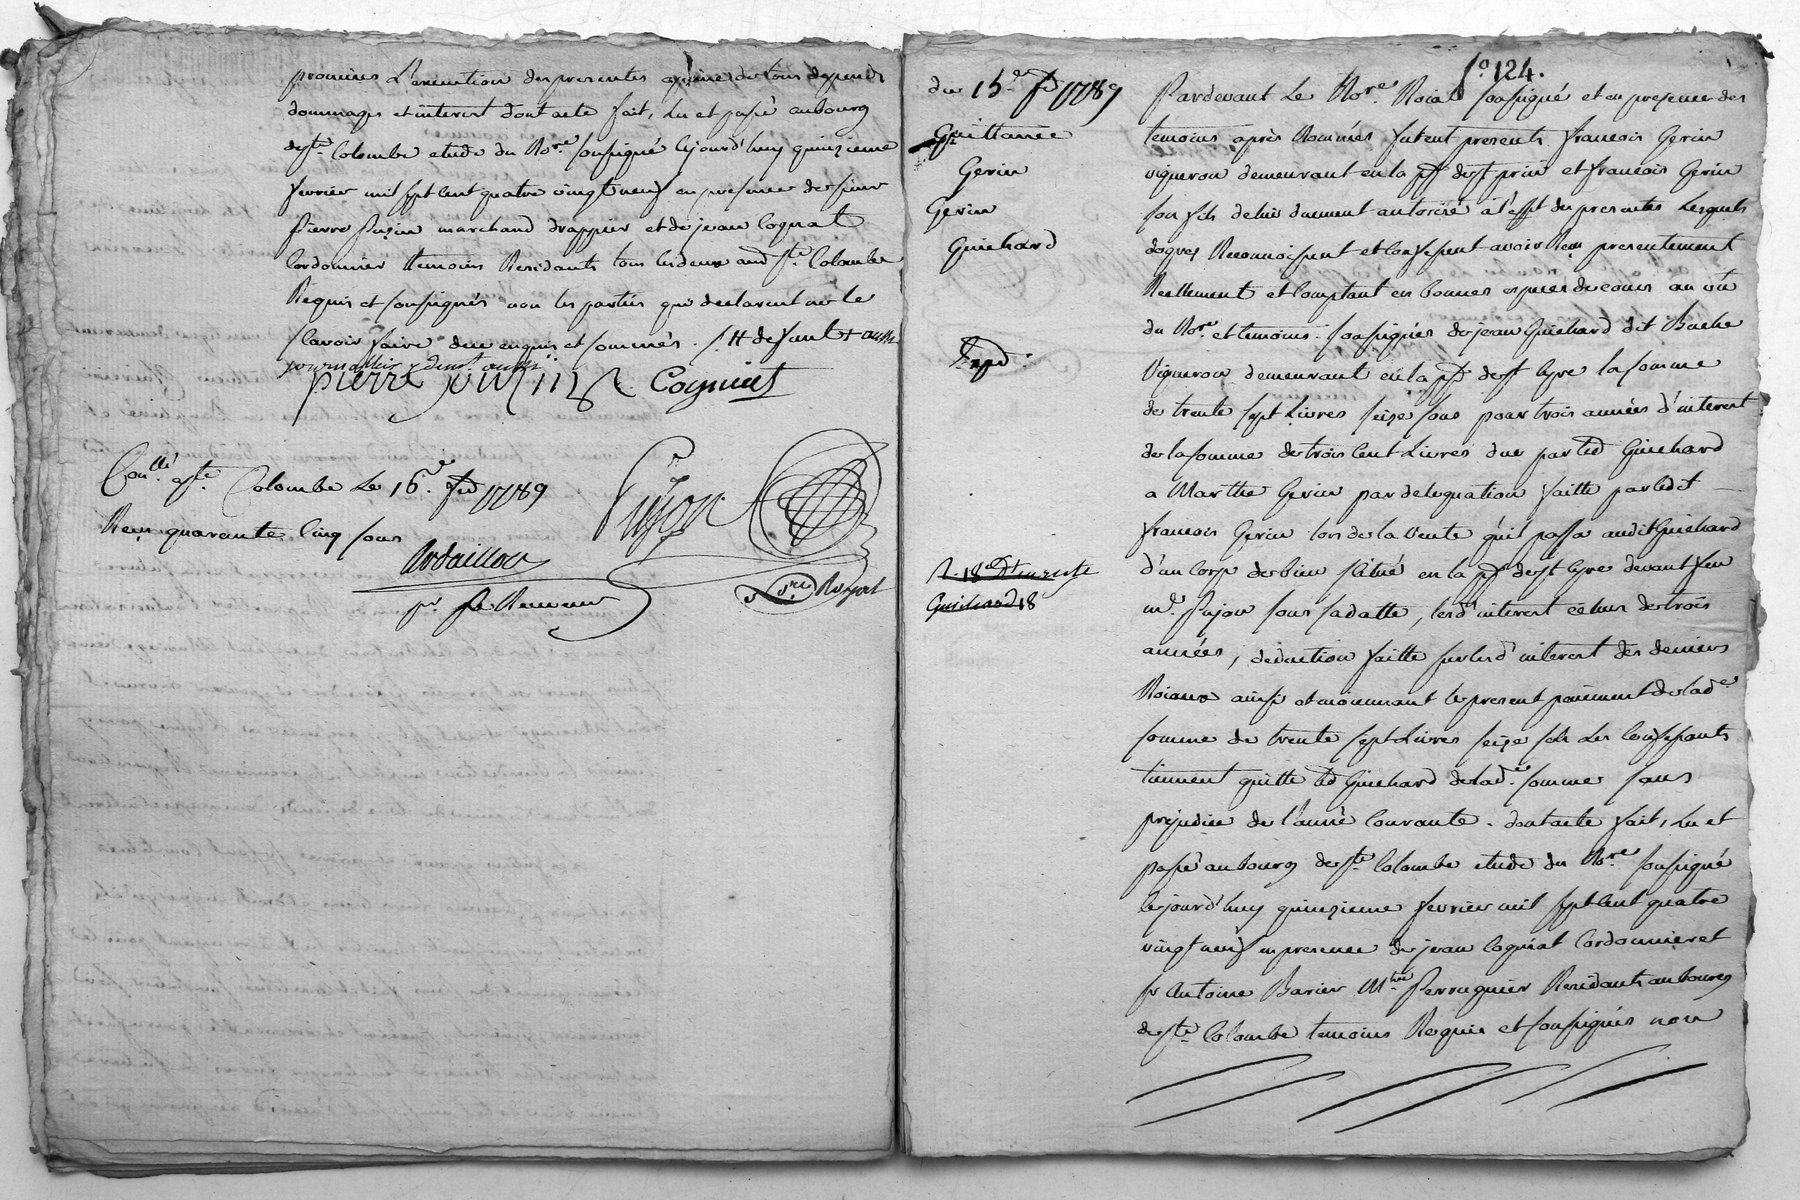 promires L'execution des presentes a peine de tous depends
dommages et interest dont acte fait, lu et passé au bourg
de Ste Colombe etude du Nore soussigné cejourd'huy quinzieme
fevrier mil sept cent quatre vingt neuf en presence de sieur
pierre marchand drappier et de jean Cognat
Cordonnier temoins Residants tous les deux aud Ste Colombe
Requis et soussignés non les parties qui declarent ne le
scavoir faire de ce enquis et sommés.
pierre Cogniet
Conllé a Ste Colombe Le 16e 1789
Reçu quarante cinq sous
Ardaillon
Pujon
Nore Royal
fo 124.
du 15e 1789
Quittance
Gerin
Gerin
Guichard
Exped.
Guichard 18
Pardevant Le Nore Roial soussigné et en presence des
temoins après Nommés furent presents francois Gerin
vigneron demeurant en la psse de St prim et francois Gerin
son fils de lui duement autorisé à l'effet des presentes Lesquels
de gres Reconnoissent et Confessent avoir Reçu presentement
Reellement et Comptant en bonnes especes de cours au vu
du Nore et temoins soussignés de jean Guichard dit Bache
Vigneron demeurant en la psse de St Cyre la somme
de trente sept Livres seize sous pour trois années d'interest
de la somme de trois Cent Livres due par led Guichard
a Marthe Gerin par deleguation faitte par ledit
francois Gerin lors de la Vente qu'il passa audit Guichard
d'un Corps de bien situé en la psse de St Cyre devant feu
me Pujon sous sa datte, lesd interest echus de trois
années, deduction faitte sur lesd interest des deniers
Roiaux ainsi et moiennant le present paiement de lade
somme de trente sept Livres seize sols Les Confessants
tiennent quitte led Guichard de lade somme sans
prejudice de l'année Courante. dont acte fait, Lu et
passé au bourg de Ste Colombe etude du Nore soussigné
Cejourd'huy quinzieme fevrier mil sept Cent quatre
vingt neuf en presence de jean Cogniat Cordonnier et
sr Antoine Barier Mtre Perruquier Residants au bourg
de Ste Colombe temoins Requis et soussignés non